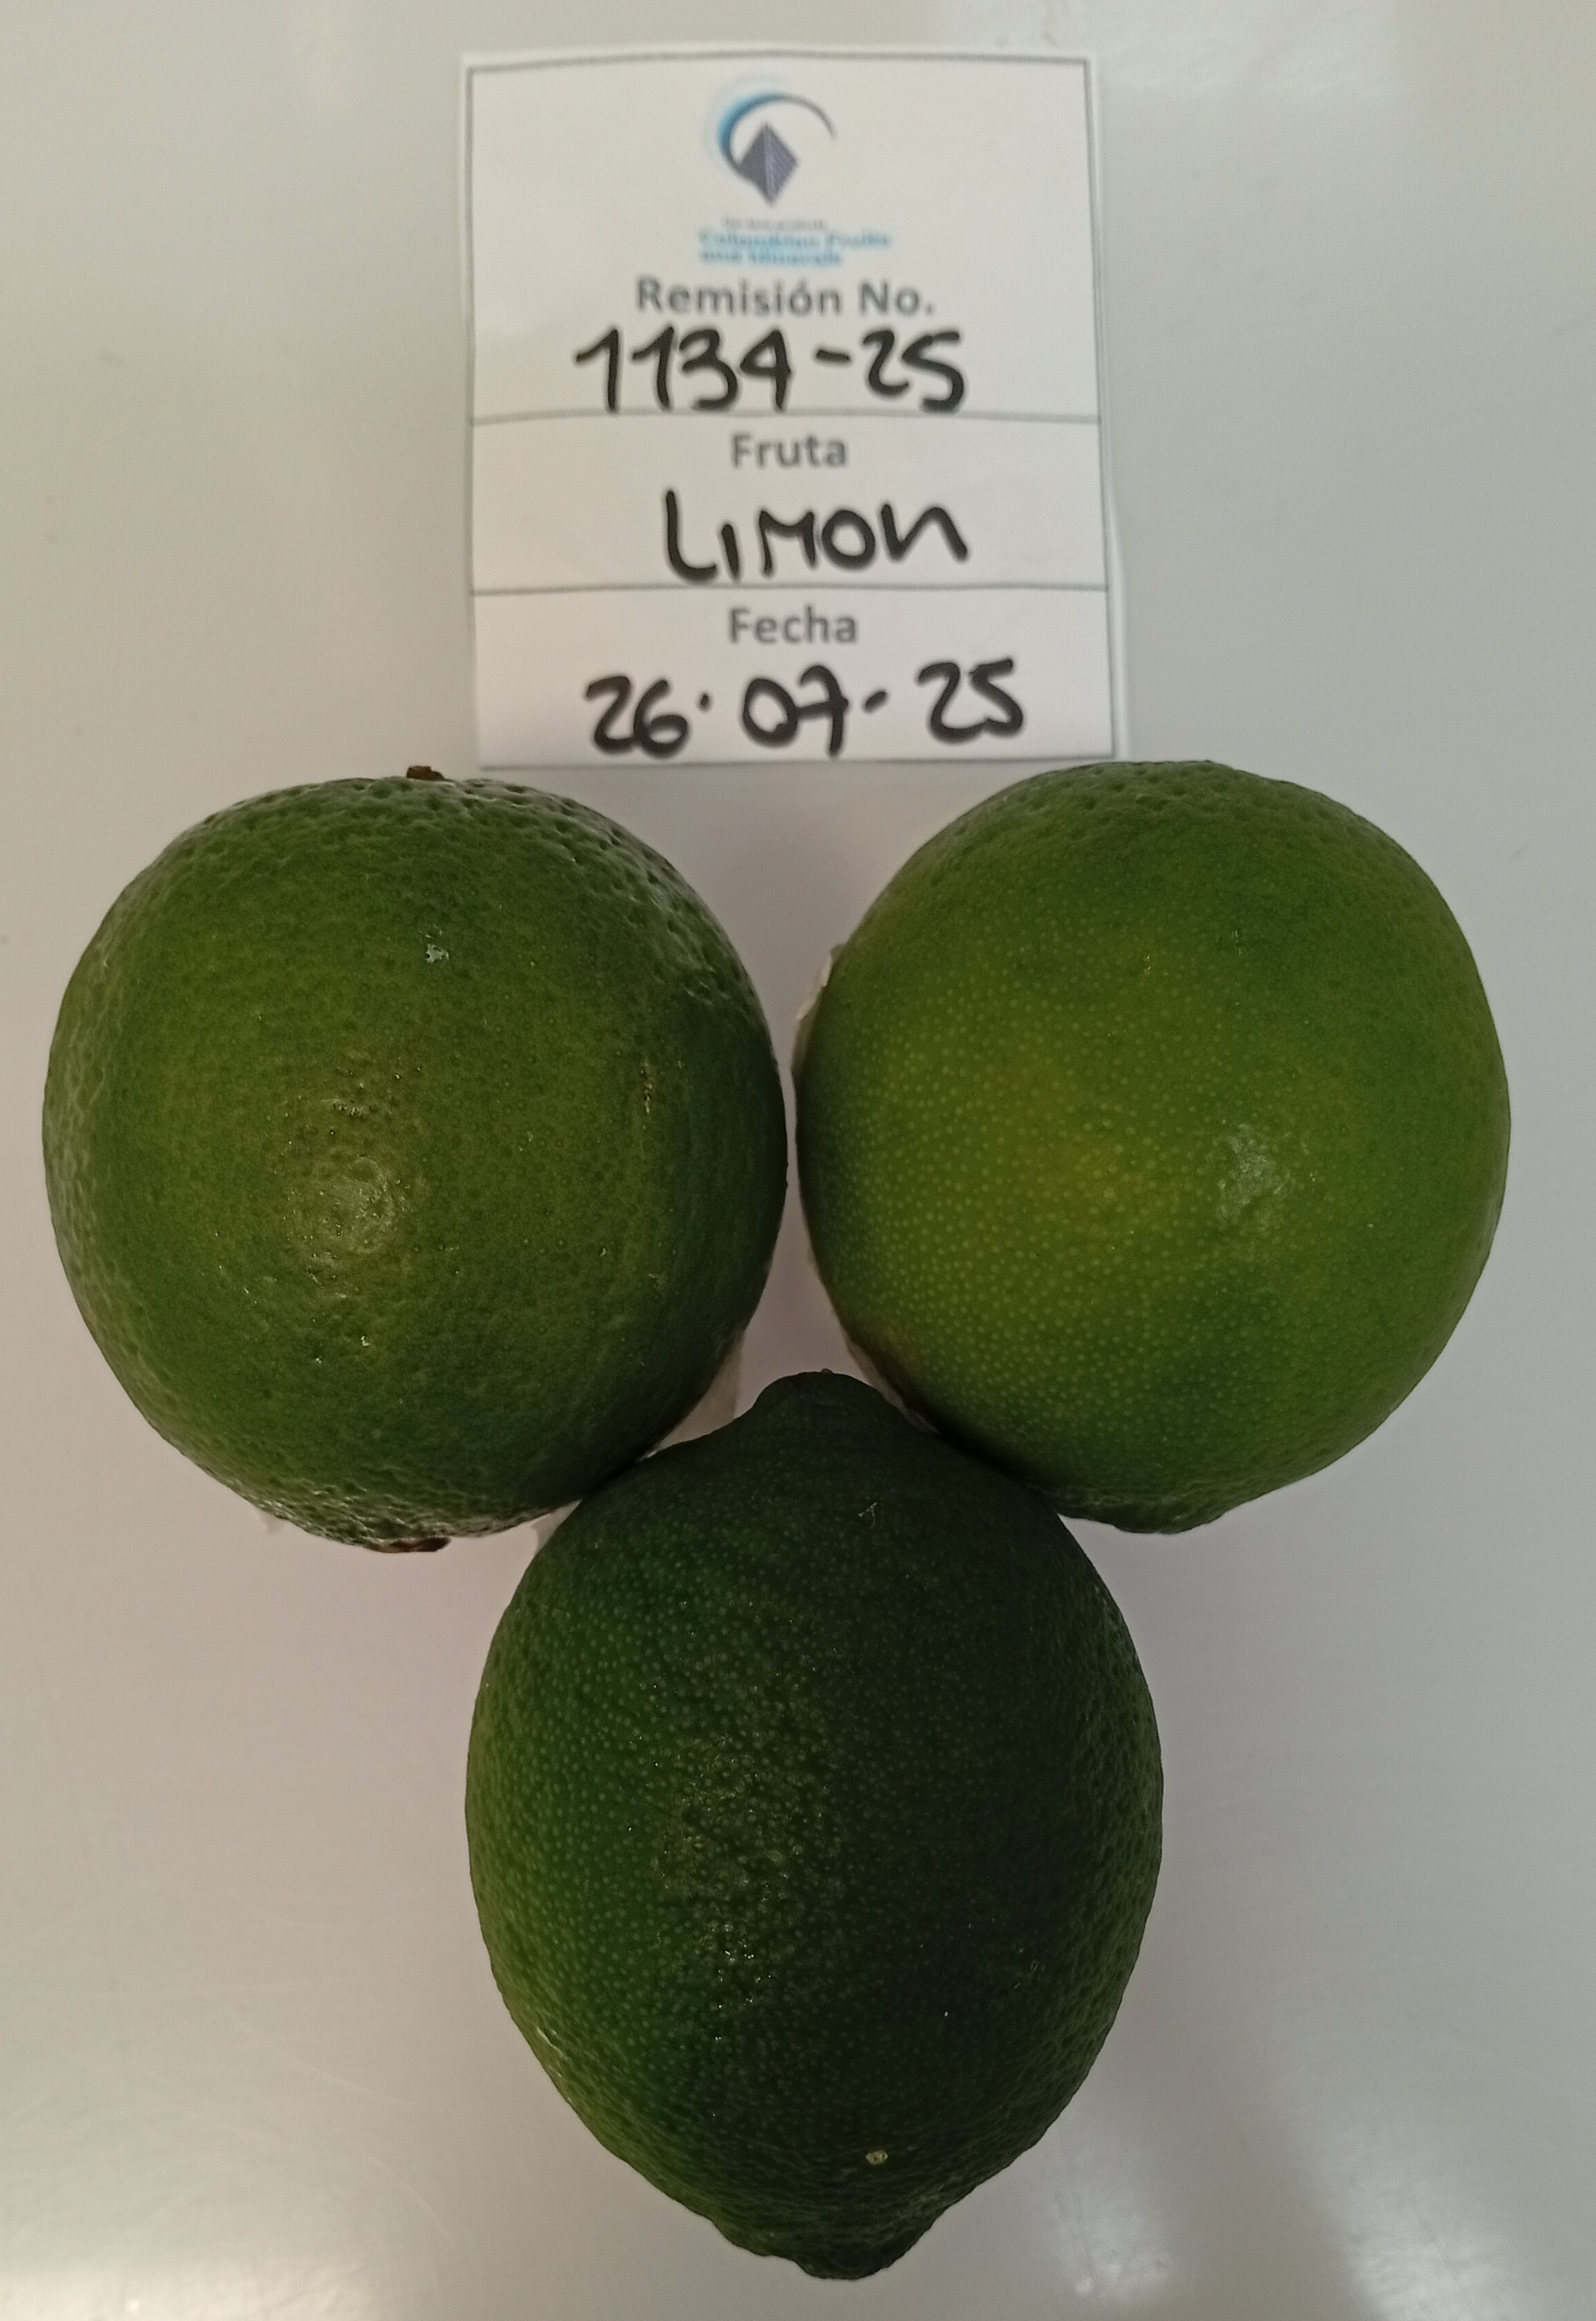 Colombian Fruits
and Minerals
Remisión No.
1134-25
Fruta
LIMON
Fecha
26·07-25